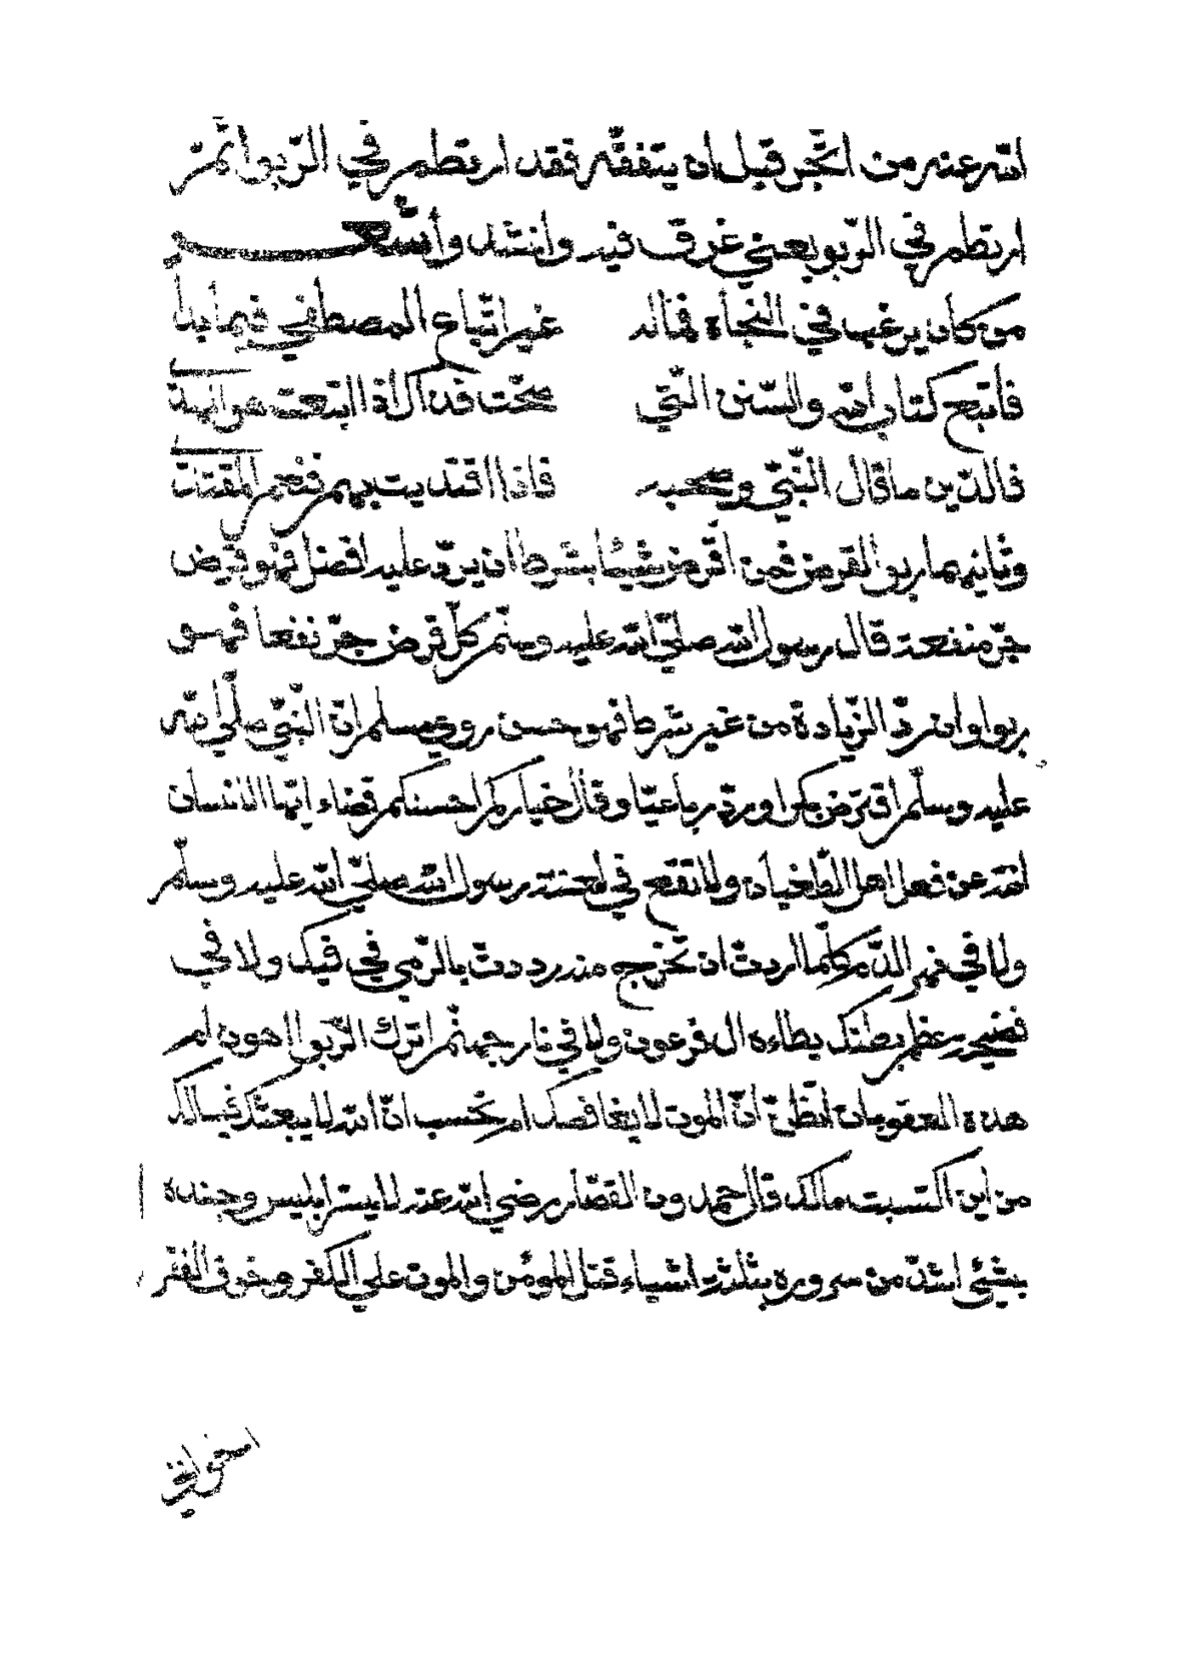 الله عنه من اتّجر قبل ان يتفقّه فقد ارتطم في الرّبوا ثمّ
ارتطم في الرّبو يعني غرق فيه وانشد وأشعـــر
من كان يرغب في النّجاة فماله غير اتّباع المصطفي فيما
فاتبع كتاب الله والسّنن الّتي صحّت فذاك اذا اتبعت هو
فالدّين ما قال النّبيّ وصحبه فاذا اقتديت بهم فنعم المقتدا
وثانيهما ربوا القرض فمن اقرض شيئا بشرط ان يردّ عليه افضل فهو قرض
جرّ منفعة قال رسول الله صلّي الله عليه وسلّم كلّ قرض جرّ نفعا فهــو
ربوا وان ردّ الزّيادة من غير شرط فهو حسن روي مسلم انّ النّبيّ صلّي الله
عليه وسلّم اقترض بكرا وردّ رباعيّا وقال خياركم احسنكم قضاء ايّها الانسان
انته عن فعل اهل الطّغيان ولا تقع في لعنته رسول الله صلّي الله عليه وسلّم
ولا في نهر الدّم كلّما اردتّ ان تخرج منه رددتّ بالرّمي في فيك ولا في
عظم بطنك يطاءه ال فرعون ولا في نار جهنّم اترك الرّبوا اهون ام
هذه العقوبات اتظنّ انّ الموت لا يغافصك ام تحسب انّ الله لا يبعثك فيسالك
من اين اكتسبت مالك قال حمدون القصّار رضي الله عنه لا يسرّ ابليس وجنده
بشيئ اشدّ من سروره بثلثة اشياء قتل المؤمن والموت علي الكفر وخوف الفقر